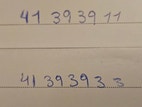 41 39 39 11
41 39 39 3 3